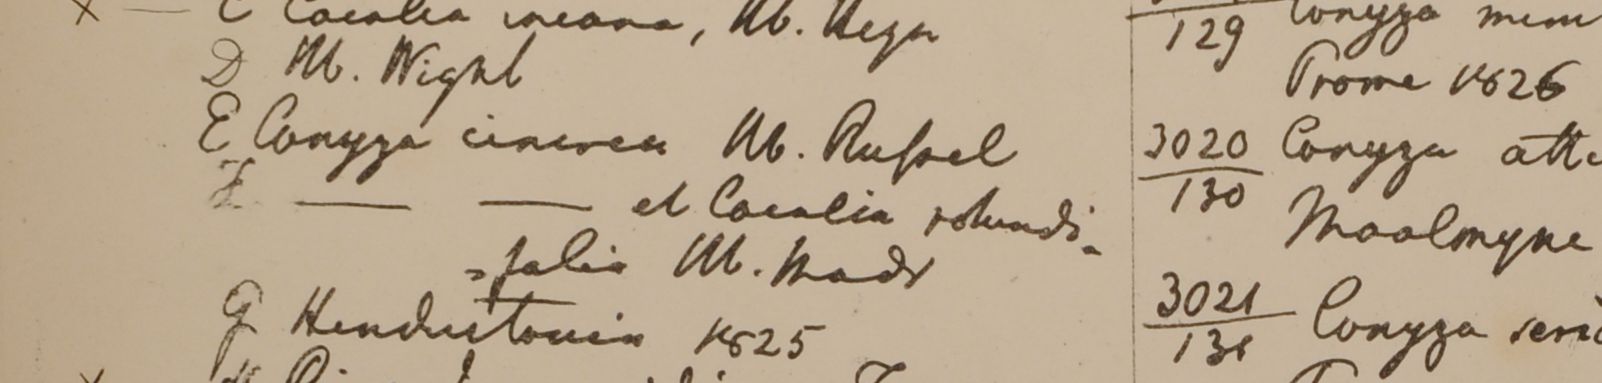 × — C Cacalia incana, Hb. Heyn
D Hb. Wight
E Conyza cinerea Hb. Russel
F — — et Cacalia rotundi-
=folia Hb. Madr
G Hindustania 1825
129 Conyza
Prome 1826
3020 Conyza
130 Moalmyne
3021 Conyza
131